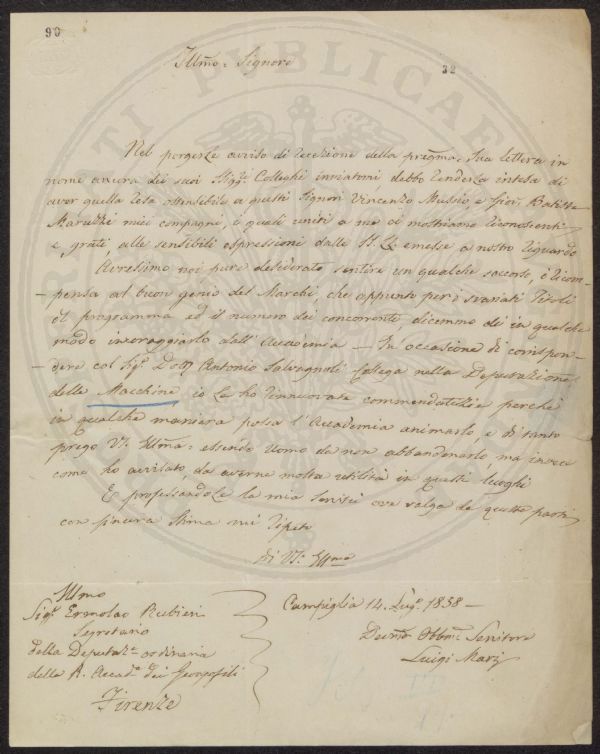 90
32
Illmo: Signore
Nel porgerle avviso di recezione della pregma. Sua lettera in
nome ancora dei suoi Sigg. Colleghi inviatomi debbo renderla intesa di
aver quella resa ostensibile a questi Signori Vincenzo Mussio, e Giov. Batista
Maruzzi miei compagni, i quali uniti a me ci mostriamo riconoscenti
e grati, alle sensibili espressioni dalla emesse a nostro riguardo
Avressimo noi pure desiderato sentire un qualche soccorso, e ricom-
-pensa al buon genio del Marchi, che appunto per i svariati Titoli
el programma ed il numero dei concorrenti, dicemmo di in qualche
modo incoraggiarlo dall'Accademia - In occasione di corrispon-
-dere col Sigr. Dottr. Antonio Salvagnoli Collega nella Deputazione
delle Macchine io Le ho rinnuovate commendatizie perchè
in qualche maniera possa l'Accademia animarlo, e di tanto
prego VS. Illma: essendo Uomo da non abbandonarlo, ma invece
come ho avvisato, da averne molta utilità in questi luoghi
E professandole la mia servitù ove valga da queste parti,
con sincera stima mi ripeto
Di VS. Illma
Illmo
Sigr. Ermolao Rubieri
Segretario
della Deputaze. ordinaria
della R. Accada. dei Georgofili
Firenze
Campiglia 14. 1858 -
Devmo Obbmo. Servitore
Luigi Mari